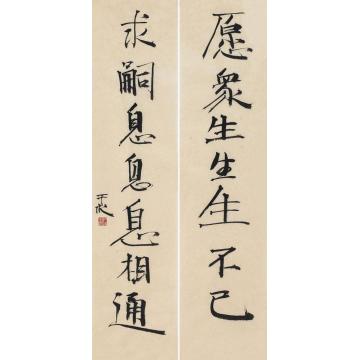 愿眾生生生不已
求嗣息息息相通
于成